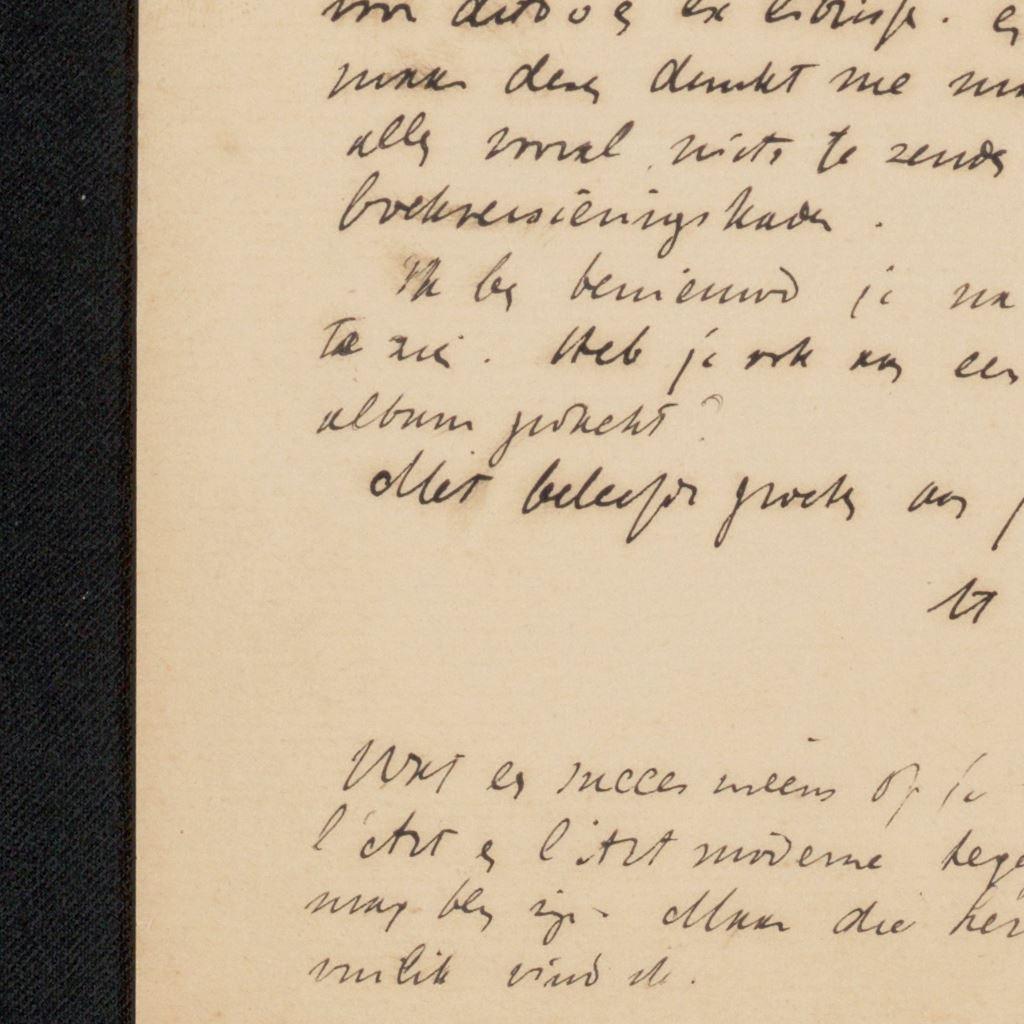 voor dito en ex librisje. en
maar deze dunkt me
alles vooral niets te zenden
boekversieringskader.
Ik ben benieuwd je
te zien. Heb je ook aan een
album gedacht?
Met beleefde groeten aan
Wat een succes ineens op je
l'Art en l'Art moderne tege
mag blij zijn. Maar die
vind ik.